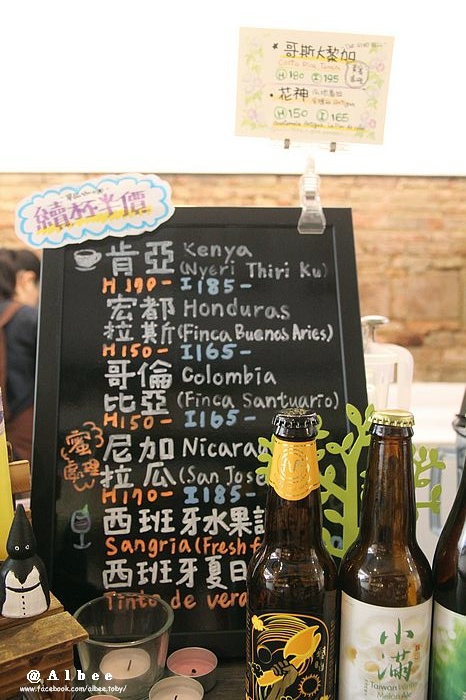 哥斯大黎加
Costa Rica
H 180 I 195
花神
H 150 I 165
續杯半價
肯亞 Kenya
(Nyeri Thiri Ku)
H 190- I 185-
宏都 Honduras
拉斯 (Finca Buenos Aries)
H 150- I 165-
哥倫 Colombia
比亞 (Finca Santuario)
H 150- I 165-
蜜處理
尼加 Nicarag
拉瓜 (San Jose
H 170- I 185-
西班牙水果
Sangria (Fresh f
西班牙夏日
Tinto de vera
小滿
Taiwan
@Albee
www.facebook.com/albee.toby/